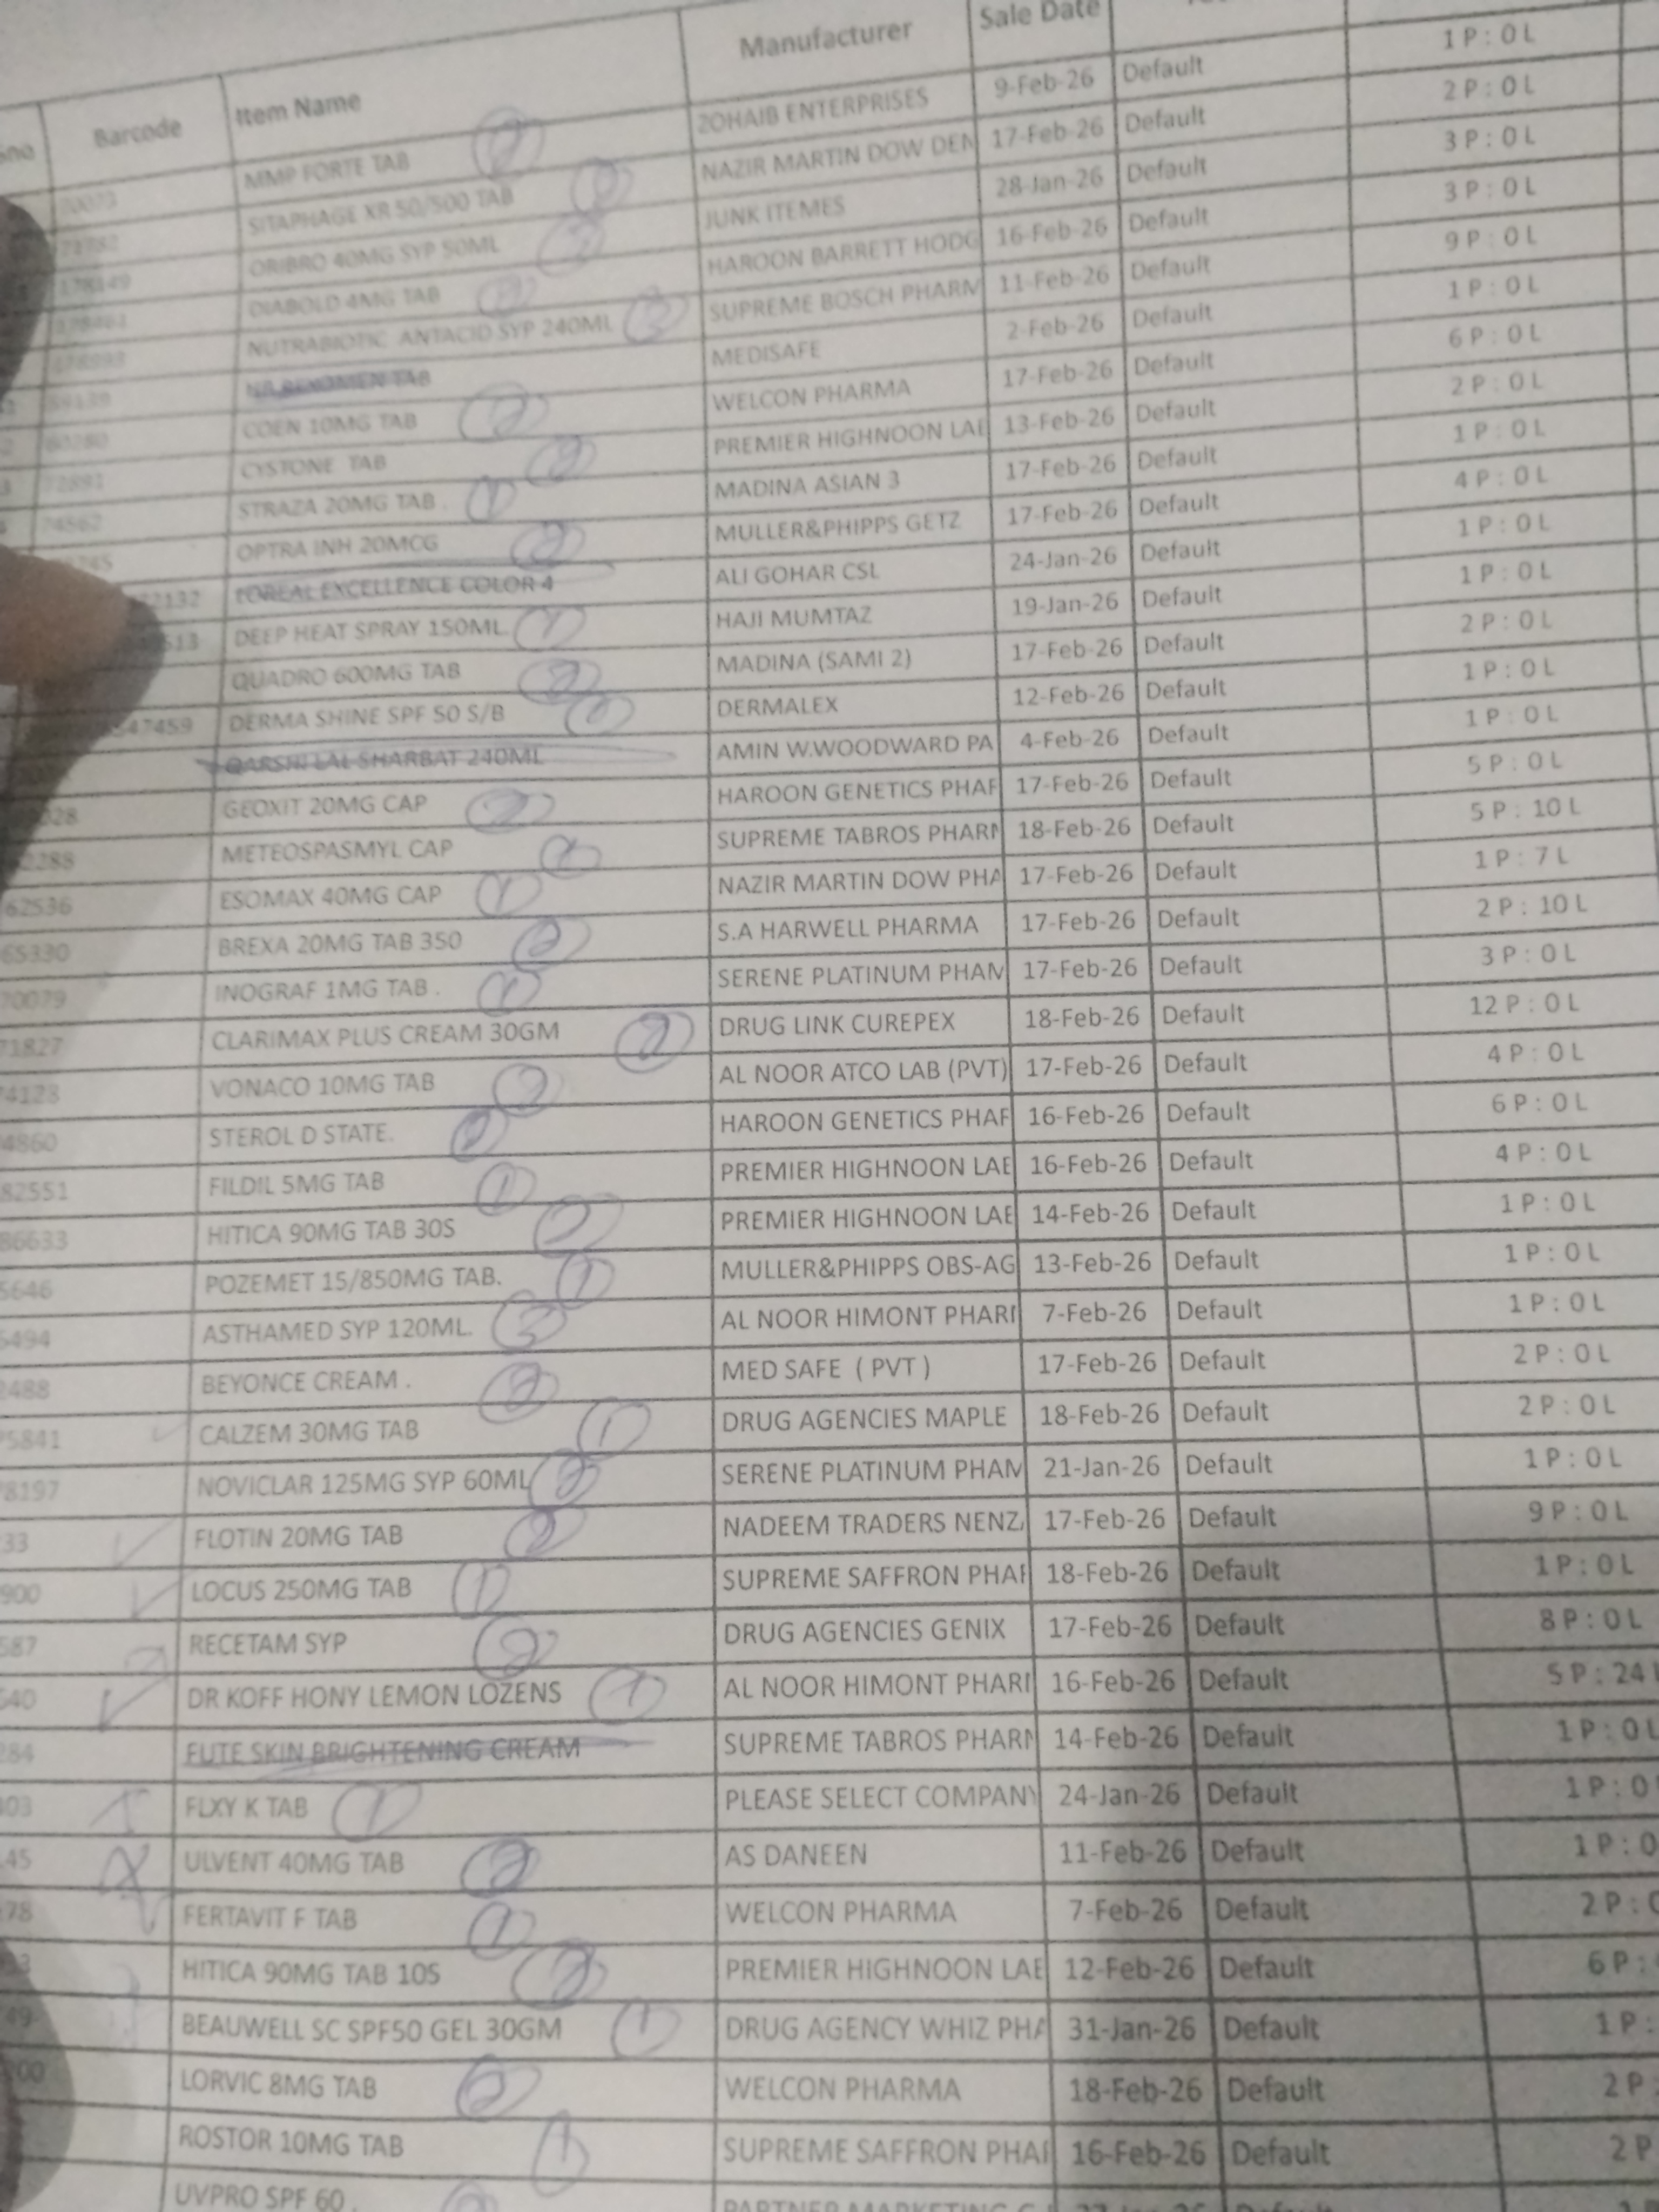 Barcode Item Name Manufacturer Sale Date
MMP FORTE TAB 2 ZOHAIB ENTERPRISES 9-Feb-26 Default 1 P : 0 L
SITAPHAGE XR 50/500 TAB NAZIR MARTIN DOW DEN 17-Feb-26 Default 2 P : 0 L
ORIBRO 40MG SYP 50ML JUNK ITEMES 28-Jan-26 Default 3 P : 0 L
DIABOLD 4MG TAB HAROON BARRETT HODG 16-Feb-26 Default 3 P : 0 L
NUTRABIOTIC ANTACID SYP 240ML SUPREME BOSCH PHARM 11-Feb-26 Default 9 P : 0 L
TAB MEDISAFE 2-Feb-26 Default 1 P : 0 L
60280 COEN 10MG TAB 2 WELCON PHARMA 17-Feb-26 Default 6 P : 0 L
72891 CYSTONE TAB 2 PREMIER HIGHNOON LAE 13-Feb-26 Default 2 P : 0 L
74562 STRAZA 20MG TAB . 1 MADINA ASIAN 3 17-Feb-26 Default 1 P : 0 L
OPTRA INH 20MCG 2 MULLER&PHIPPS GETZ 17-Feb-26 Default 4 P : 0 L
2132 LOREAL EXCELLENCE COLOR 4 ALI GOHAR CSL 24-Jan-26 Default 1 P : 0 L
513 DEEP HEAT SPRAY 150ML. 1 HAJI MUMTAZ 19-Jan-26 Default 1 P : 0 L
QUADRO 600MG TAB 2 MADINA (SAMI 2) 17-Feb-26 Default 2 P : 0 L
47459 DERMA SHINE SPF 50 S/B 1 DERMALEX 12-Feb-26 Default 1 P : 0 L
QARSHI LAL SHARBAT 240ML AMIN W.WOODWARD PA 4-Feb-26 Default 1 P : 0 L
GEOXIT 20MG CAP 2 HAROON GENETICS PHAR 17-Feb-26 Default 5 P : 0 L
2288 METEOSPASMYL CAP 1 SUPREME TABROS PHARM 18-Feb-26 Default 5 P : 10 L
62536 ESOMAX 40MG CAP 1 NAZIR MARTIN DOW PHA 17-Feb-26 Default 1 P : 7 L
65330 BREXA 20MG TAB 350 2 S.A HARWELL PHARMA 17-Feb-26 Default 2 P : 10 L
70079 INOGRAF 1MG TAB . 1 SERENE PLATINUM PHAM 17-Feb-26 Default 3 P : 0 L
71827 CLARIMAX PLUS CREAM 30GM 2 DRUG LINK CUREPEX 18-Feb-26 Default 12 P : 0 L
4123 VONACO 10MG TAB 2 AL NOOR ATCO LAB (PVT) 17-Feb-26 Default 4 P : 0 L
4860 STEROL D STATE. 2 HAROON GENETICS PHAR 16-Feb-26 Default 6 P : 0 L
82551 FILDIL 5MG TAB 1 PREMIER HIGHNOON LAE 16-Feb-26 Default 4 P : 0 L
86633 HITICA 90MG TAB 30S 2 PREMIER HIGHNOON LAE 14-Feb-26 Default 1 P : 0 L
5646 POZEMET 15/850MG TAB. 1 MULLER&PHIPPS OBS-AG 13-Feb-26 Default 1 P : 0 L
5494 ASTHAMED SYP 120ML. 3 AL NOOR HIMONT PHARI 7-Feb-26 Default 1 P : 0 L
2488 BEYONCE CREAM . 2 MED SAFE ( PVT ) 17-Feb-26 Default 2 P : 0 L
75841 CALZEM 30MG TAB 1 DRUG AGENCIES MAPLE 18-Feb-26 Default 2 P : 0 L
78197 NOVICLAR 125MG SYP 60ML 2 SERENE PLATINUM PHAM 21-Jan-26 Default 1 P : 0 L
33 FLOTIN 20MG TAB 2 NADEEM TRADERS NENZ 17-Feb-26 Default 9 P : 0 L
900 LOCUS 250MG TAB 1 SUPREME SAFFRON PHAR 18-Feb-26 Default 1 P : 0 L
587 RECETAM SYP 2 DRUG AGENCIES GENIX 17-Feb-26 Default 8 P : 0 L
640 DR KOFF HONY LEMON LOZENS 1 AL NOOR HIMONT PHARI 16-Feb-26 Default 5 P : 24
284 FUTE SKIN BRIGHTENING CREAM SUPREME TABROS PHARM 14-Feb-26 Default 1 P : 0 L
403 FLXY K TAB 1 PLEASE SELECT COMPANY 24-Jan-26 Default 1 P : 0
45 ULVENT 40MG TAB 2 AS DANEEN 11-Feb-26 Default 1 P : 0
78 FERTAVIT F TAB 1 WELCON PHARMA 7-Feb-26 Default 2 P : 0
HITICA 90MG TAB 10S 2 PREMIER HIGHNOON LAE 12-Feb-26 Default 6 P :
49 BEAUWELL SC SPF50 GEL 30GM 1 DRUG AGENCY WHIZ PHA 31-Jan-26 Default 1 P :
LORVIC 8MG TAB 2 WELCON PHARMA 18-Feb-26 Default 2 P
ROSTOR 10MG TAB 1 SUPREME SAFFRON PHAR 16-Feb-26 Default 2 P
UVPRO SPF 60 .